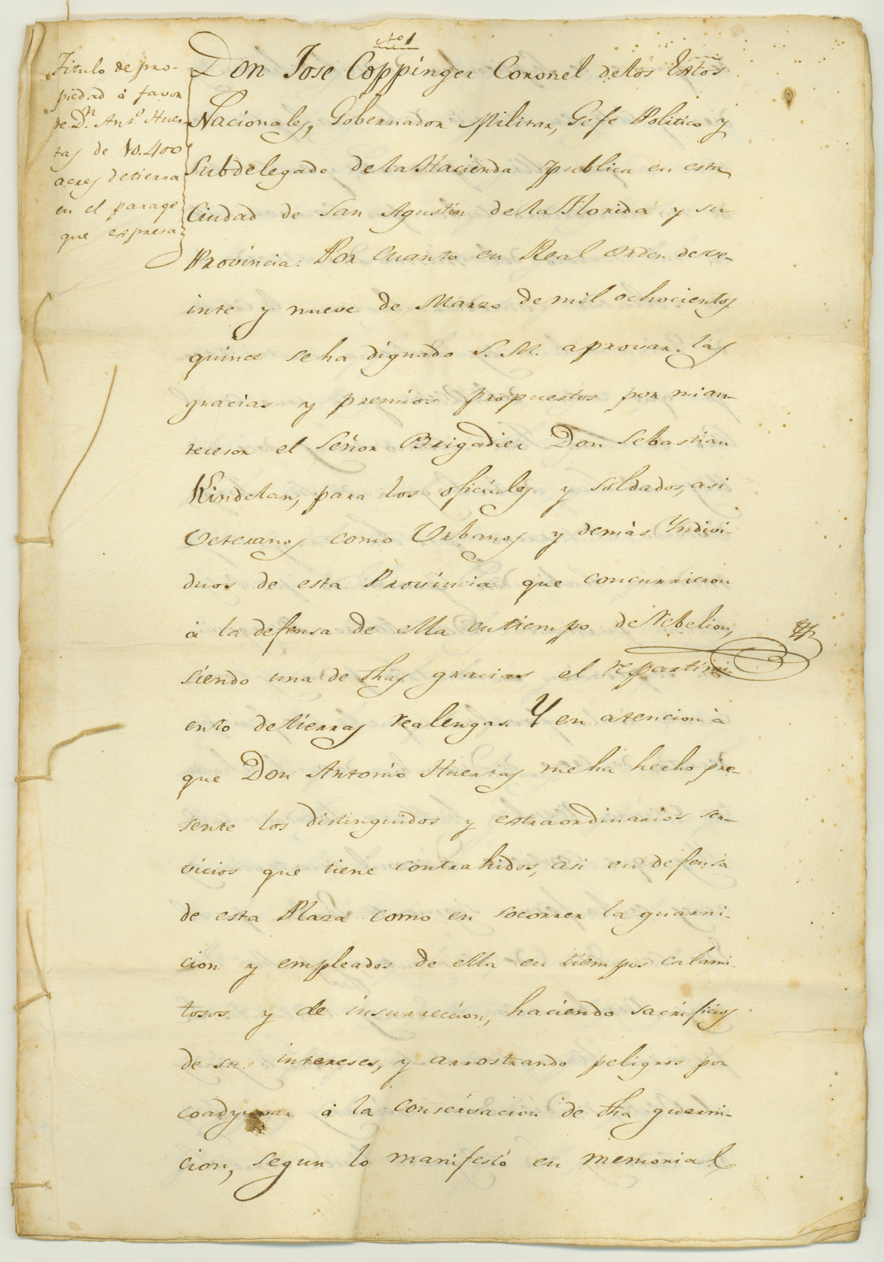 No 1
Titulo de pro-
piedad á favor
de Dn. Anto. Huer-
tas de 10.400
acres de tierra
en el parage
que expresa
Don Jose Coppinger Coronel delos Extos
Nacionales, Gobernador Militar, Gefe Politico y
Subdelegado dela Hacienda publica en esta
Ciudad de San Agustin dela Florida y su
Provincia: Por cuanto en Real orden deve-
inte y nueve de Marzo de mil ochocientos
quince se ha dignado S.M. aprovar las
gracias y premios propuestos por mi an-
tecesor el Señor Brigadier Don Sebastian
Kindelan, para los oficiales y soldados, asi
Veteranos como Urbanos y demás Yndivi-
duos de esta Provincia que concurrieron
á la defensa de ella entiempo de Rebelion,
siendo una de dhas gracias el repartimi-
ento detierras realengas. Y en atencion á
que Don Antonio Huertas me ha hecho pre-
sente los distinguidos y extraordinarios ser-
vicios que tiene contrahidos, asi en defensa
de esta Plaza como en socorrer la guarni-
cion y empleados de ella en tiempos calami-
tosos y de insurreccion, haciendo sacrificios
de sus intereses, y arrostrando peligros por
coadyuvar á la conservacion de dha guarni-
cion, segun lo manifestó en memorial